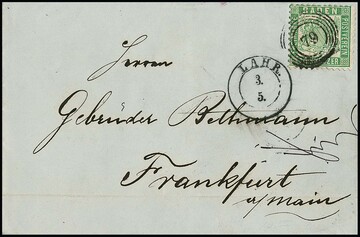 BADEN
FREIMARKE
POSTVEREIN
79
LAHR.
3.
5.
Herren
Gebrüder Bethmann
Frankfurt
a/main